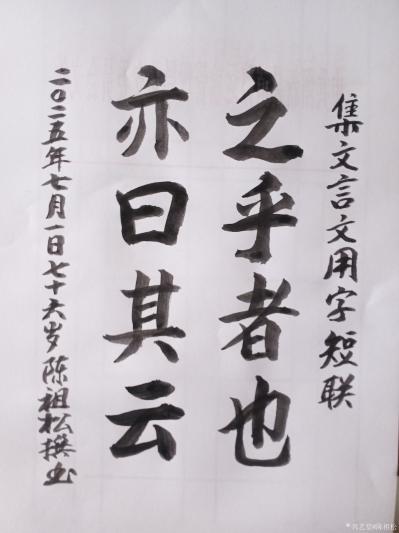 集文言文用字短联
之乎者也
亦曰其云
二〇二五年七月一日七十六岁陈祖松撰书